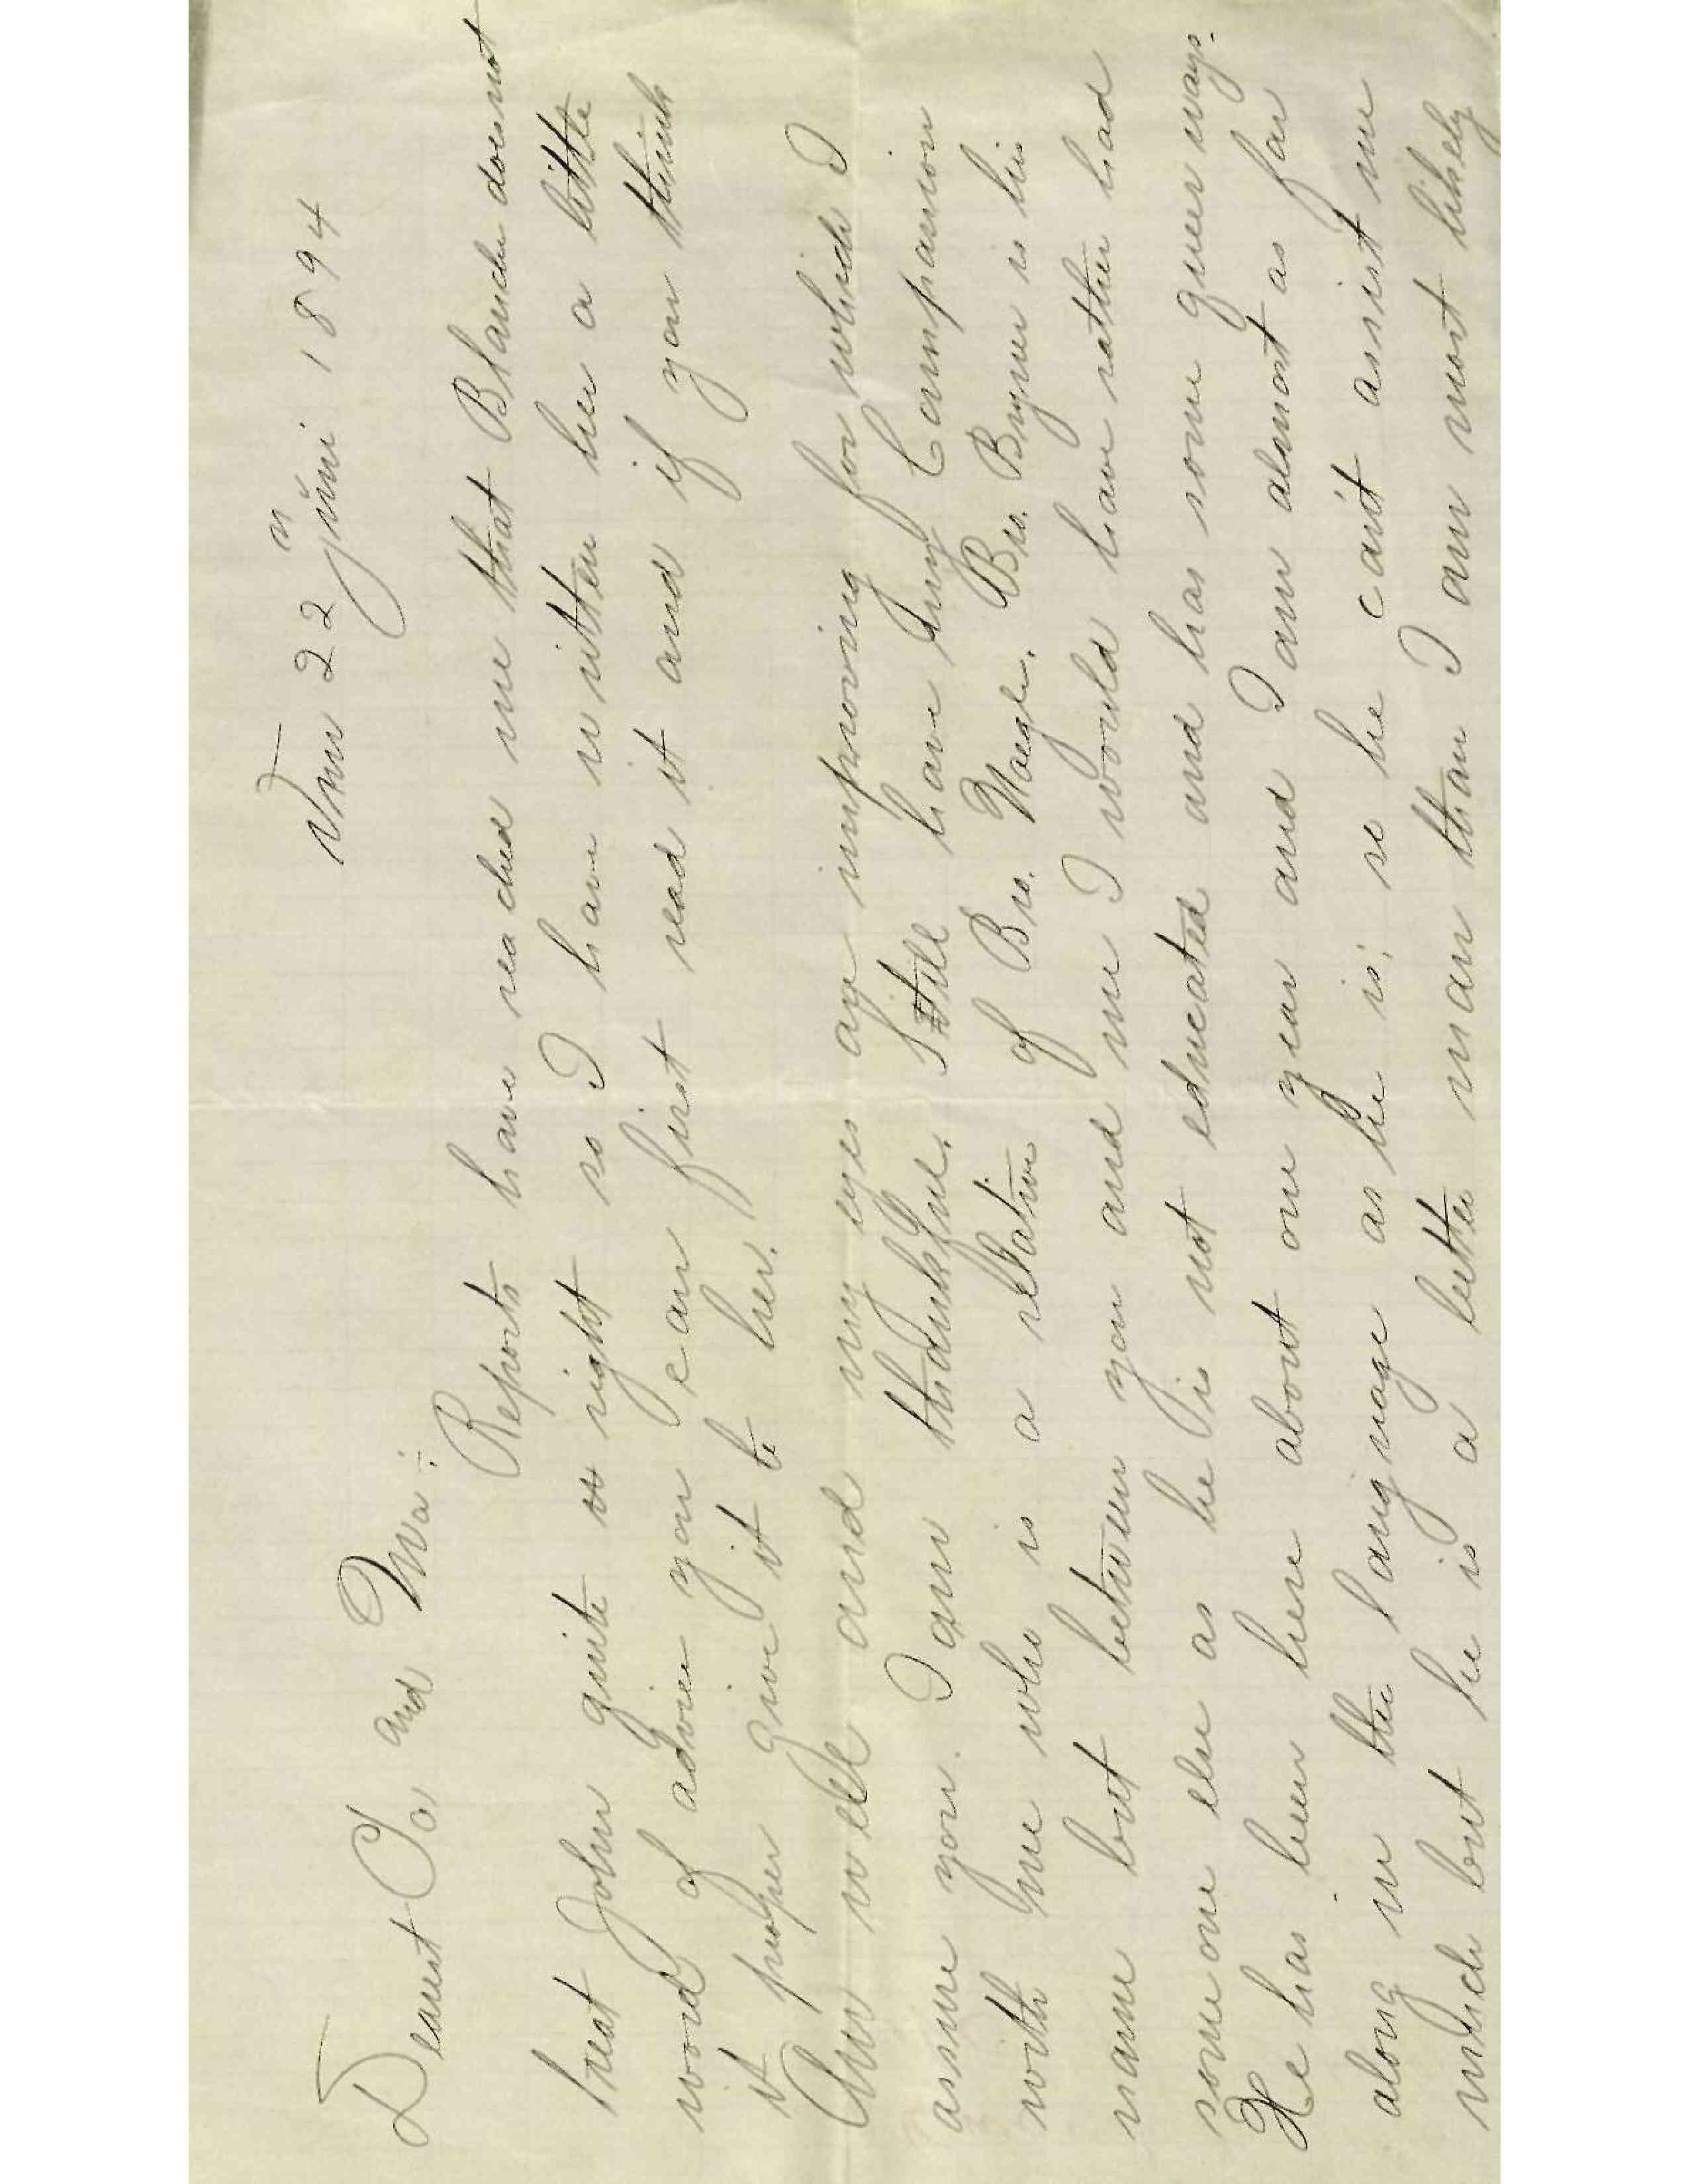 22n juni 1894
Dearest Pa and Ma:
Reports have reached me that Blanche does not
treat John quite right so I have written her a little
word of advice you can first read it and if you think
it proper give it to her.
Am well and my eyes are improving for which I
assure you I am thankful. Still have my Companion
with me who is a relative of Bro. Naegle. Bro. Bryner is his
name but between you and me I would have rather had
some one else as he is not educated and has some queer ways.
He has been here about one year and I am almost as far
along in the language as he is; so he can't assist me
much but he is a better man than I am most likely